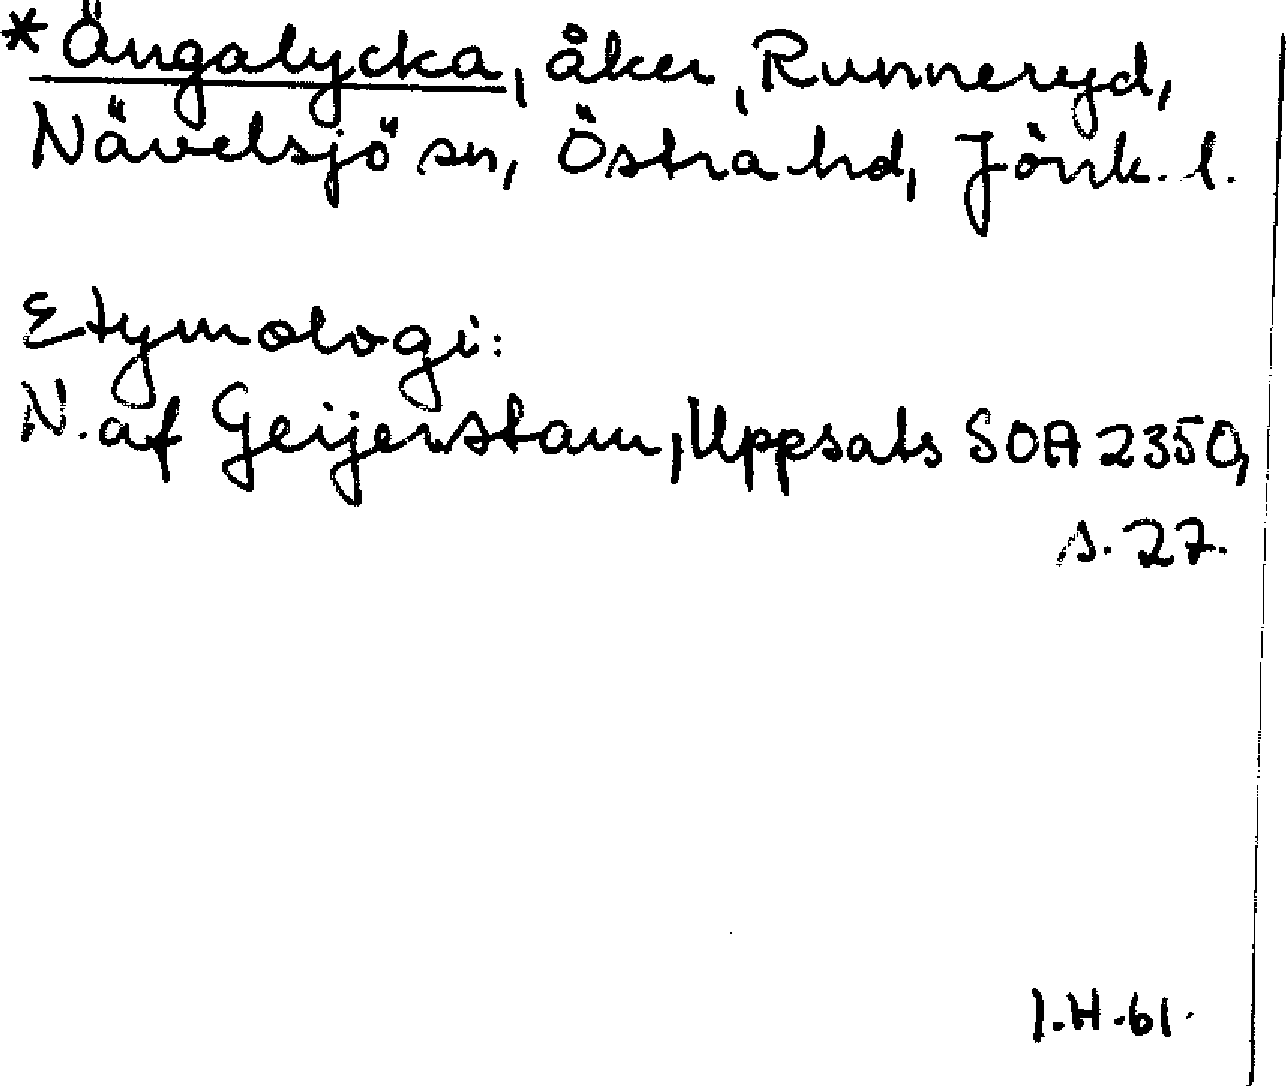 *Ängalycka, åker, Runneryd,
Nävelsjö sn, Östra hd, Jönk. l.
Etymologi:
N. af Geijerstam, Uppsats SOA 2350,
s. 27.
I.H.61.